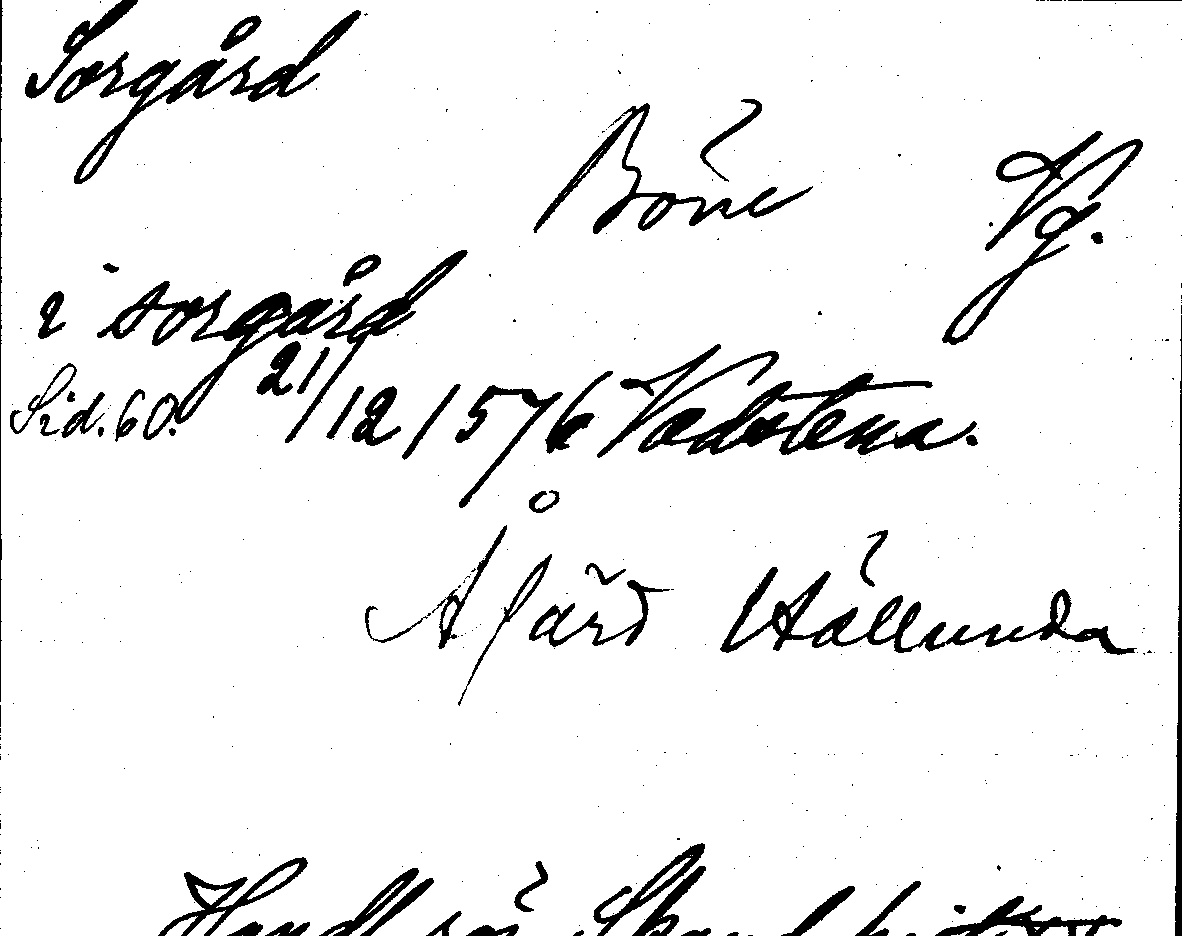 Sorgård
Böne Vg.
i sorgård
Sid. 60. 21/12 1576 Vadstena.
Hällunda
Handl rör Skand hist